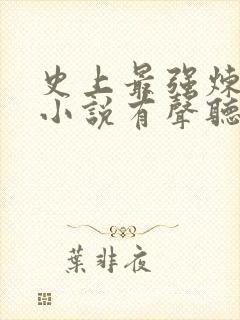 史上最强炼
小說有聲聽
葉非夜